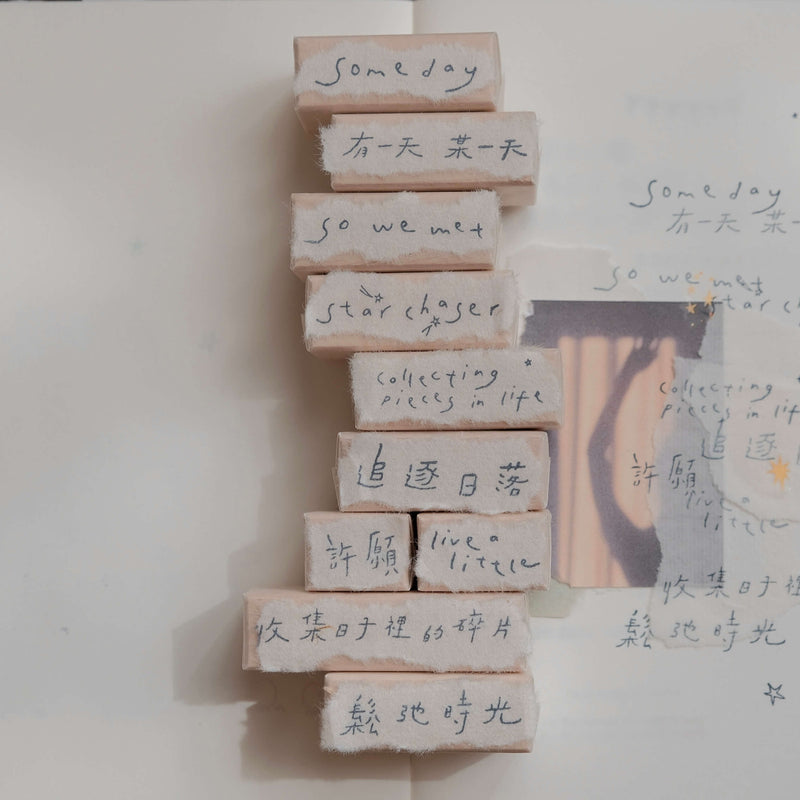 someday
有一天 某一天
so we met
star chaser
collecting
pieces in life
追逐日落
許願
live a
little
收集日子裡的碎片
鬆弛時光
someday
有一天 某一
so we met
star ch
collecting
pieces in lif
追逐
許願
live a
little
收集日子裡
鬆弛時光